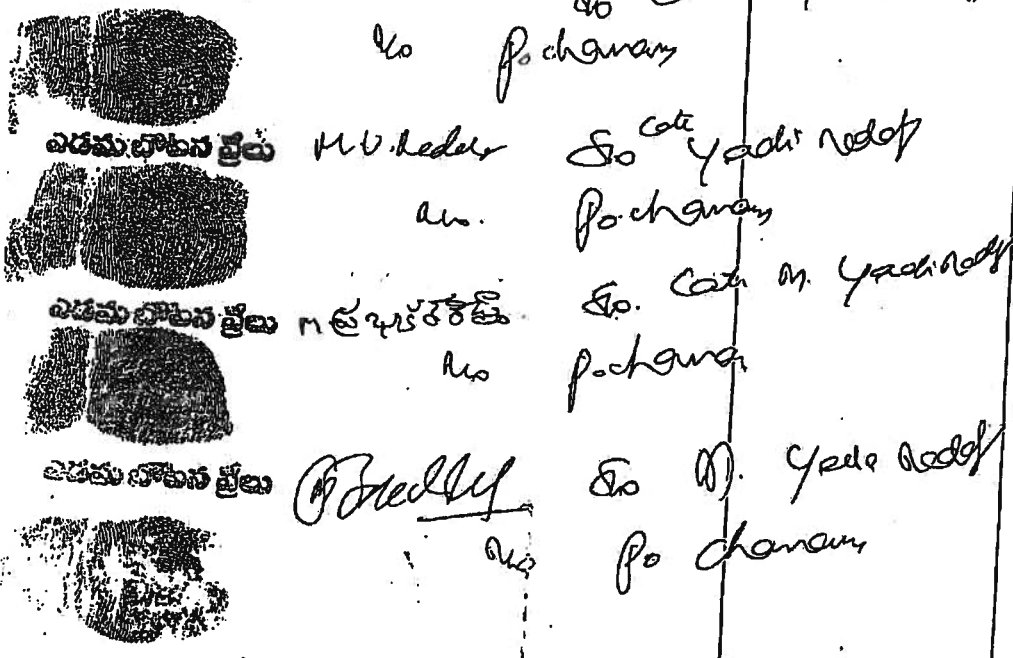 S/o
R/o Pocharam
ఎడమ బొటన వ్రేలు M.V.Reddy S/o Late Yadi Reddy
R/o. Pocharam
ఎడమ బొటన వ్రేలు M ప్రభాకర్ రెడ్డి S/o. Late M. Yadi Reddy
R/o Pocharam
ఎడమ బొటన వ్రేలు S/o M. Yadi Reddy
R/o Pocharam